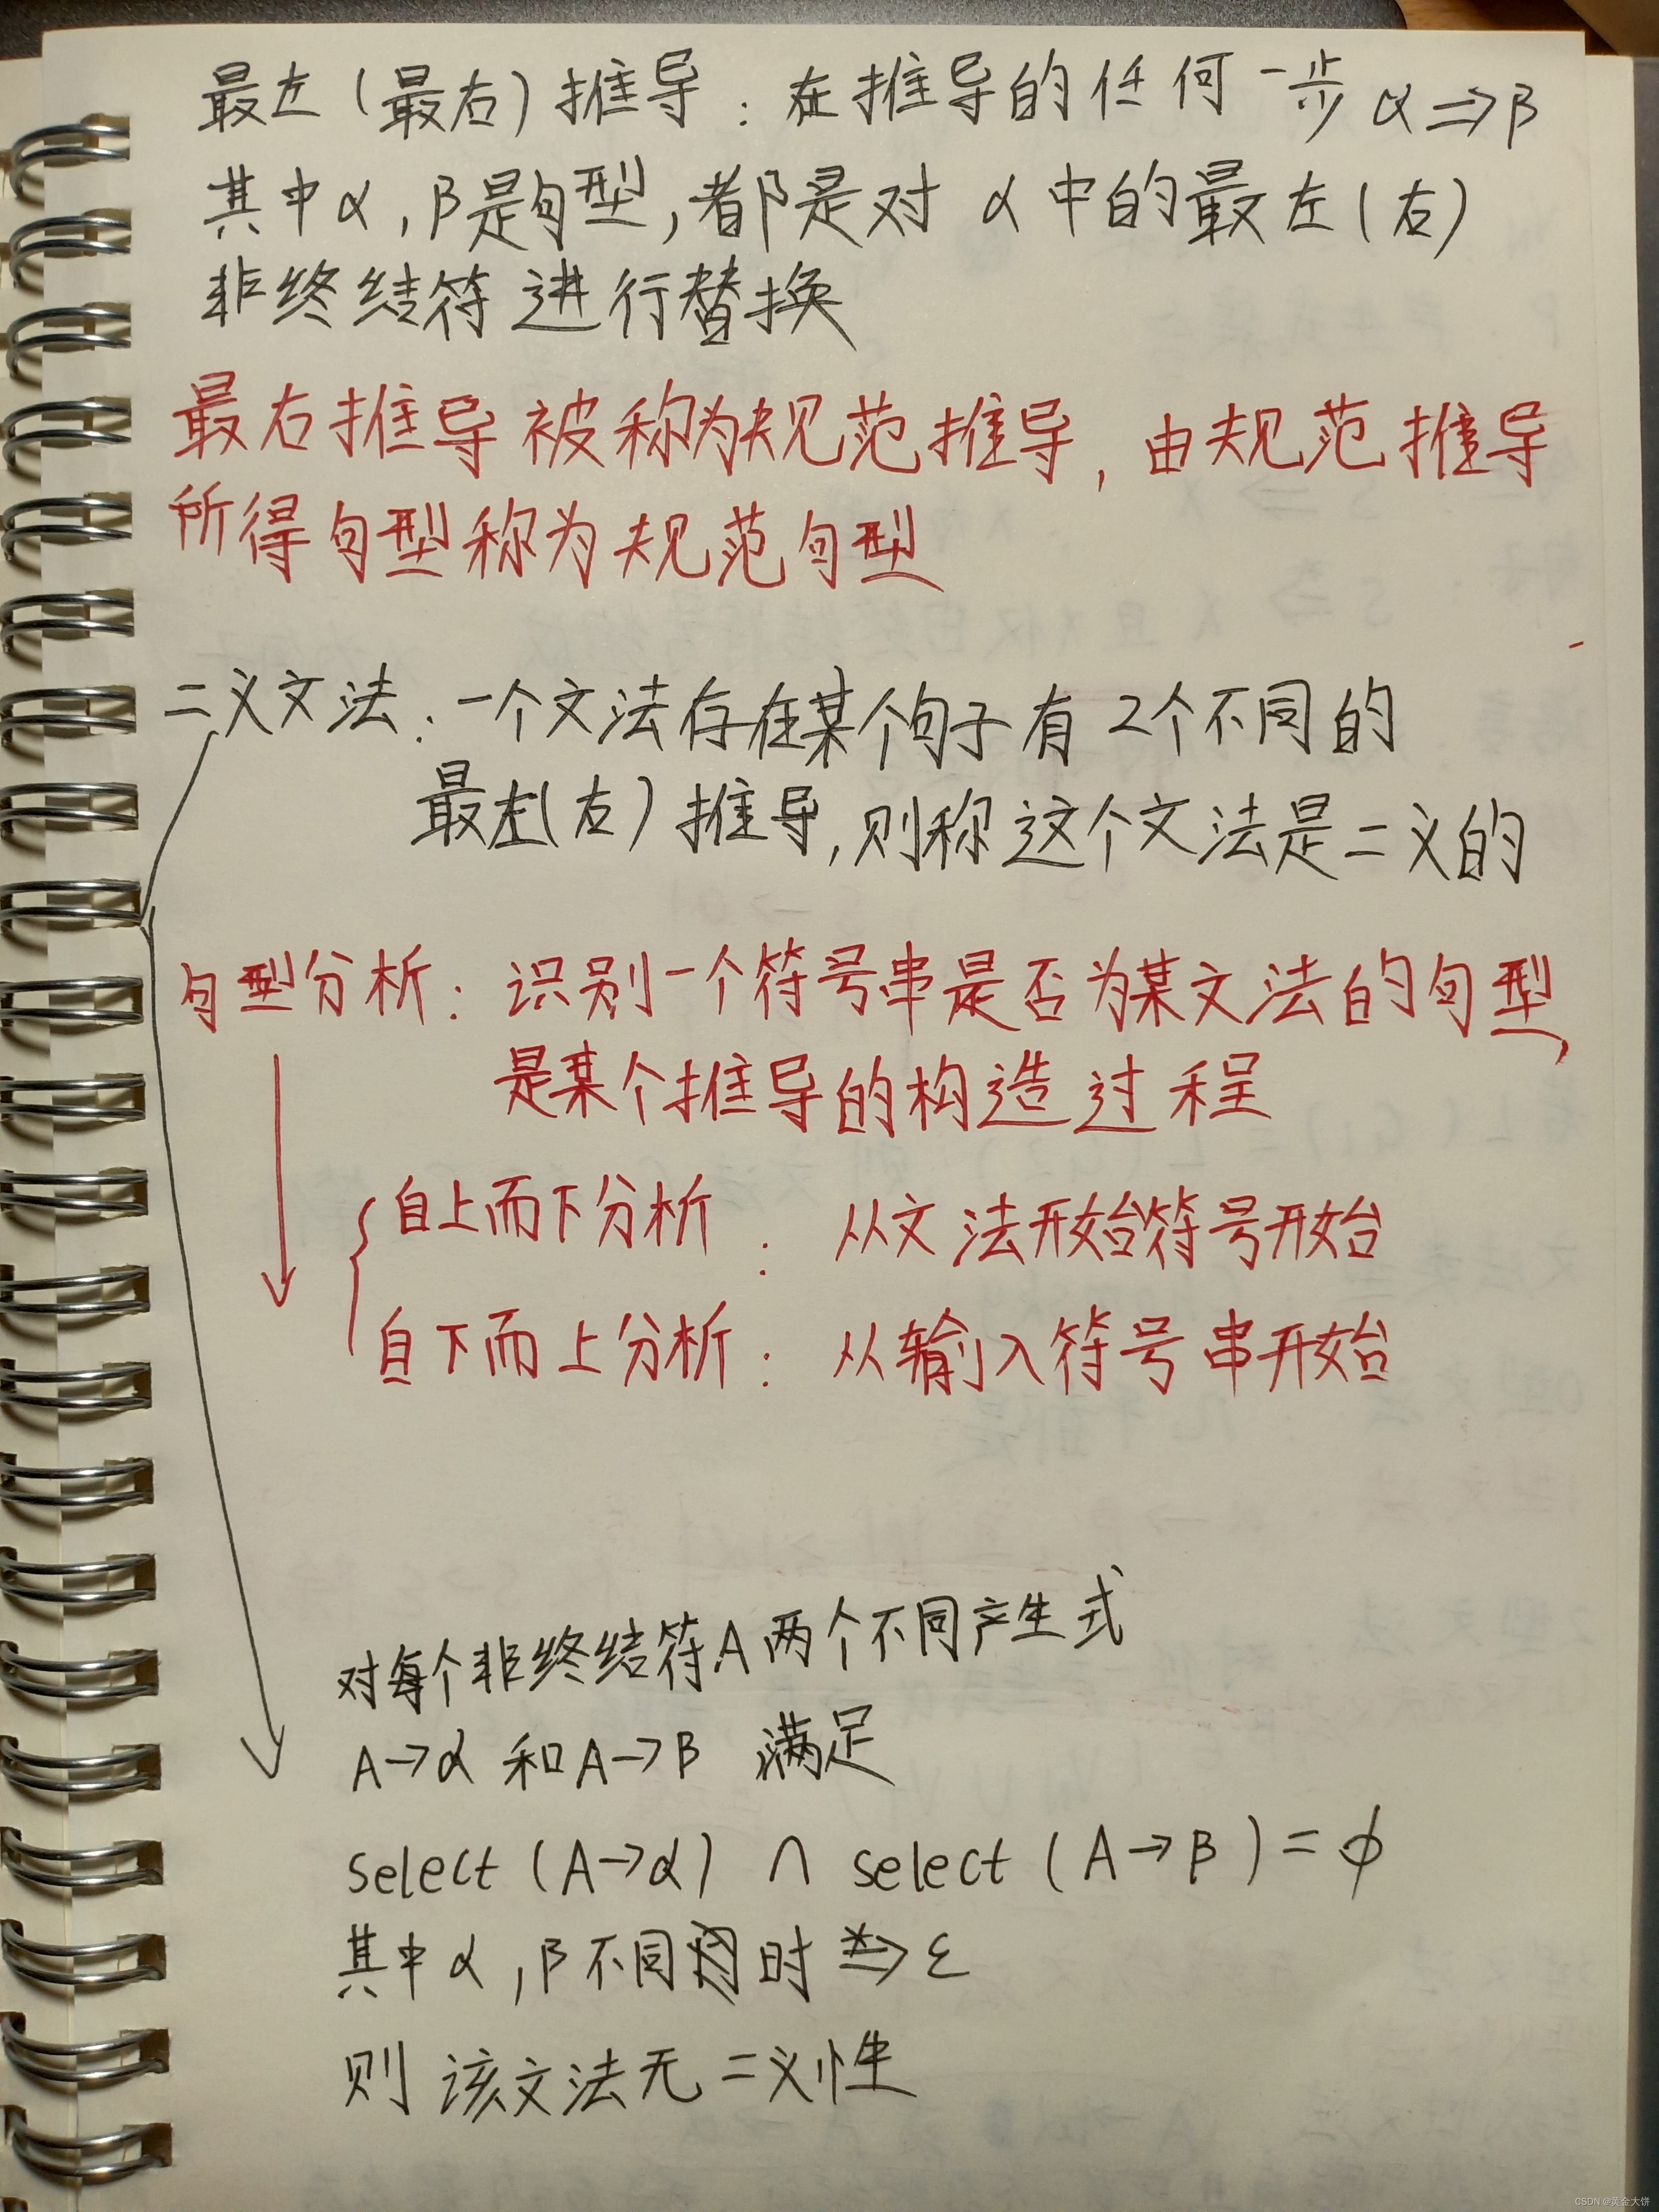 最左(最右)推导:在推导的任何一步α⇒β
其中α,β是句型,都是对α中的最左(右)
非终结符进行替换
最右推导被称为规范推导,由规范推导
所得句型称为规范句型
二义文法:一个文法存在某个句子有2个不同的
最左(右)推导,则称这个文法是二义的
句型分析:识别一个符号串是否为某文法的句型,
是某个推导的构造过程
自上而下分析:从文法开始符号开始
自下而上分析:从输入符号串开始
对每个非终结符A两个不同产生式
A→α和A→β 满足
select(A→α)∩select(A→β)=φ
其中α,β不同时*⇒ε
则该文法无二义性
CSDN @黄金大饼